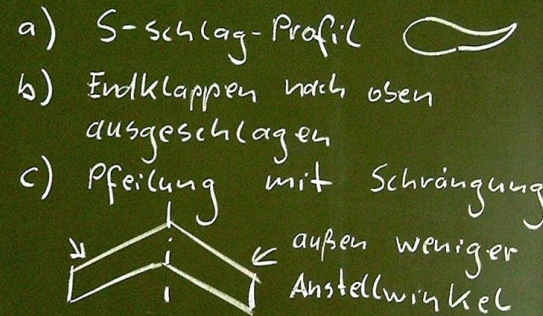 a) S-schlag-Profil
b) Endklappen nach oben
ausgeschlagen
c) Pfeilung mit Schrängung
außen weniger
Anstellwinkel